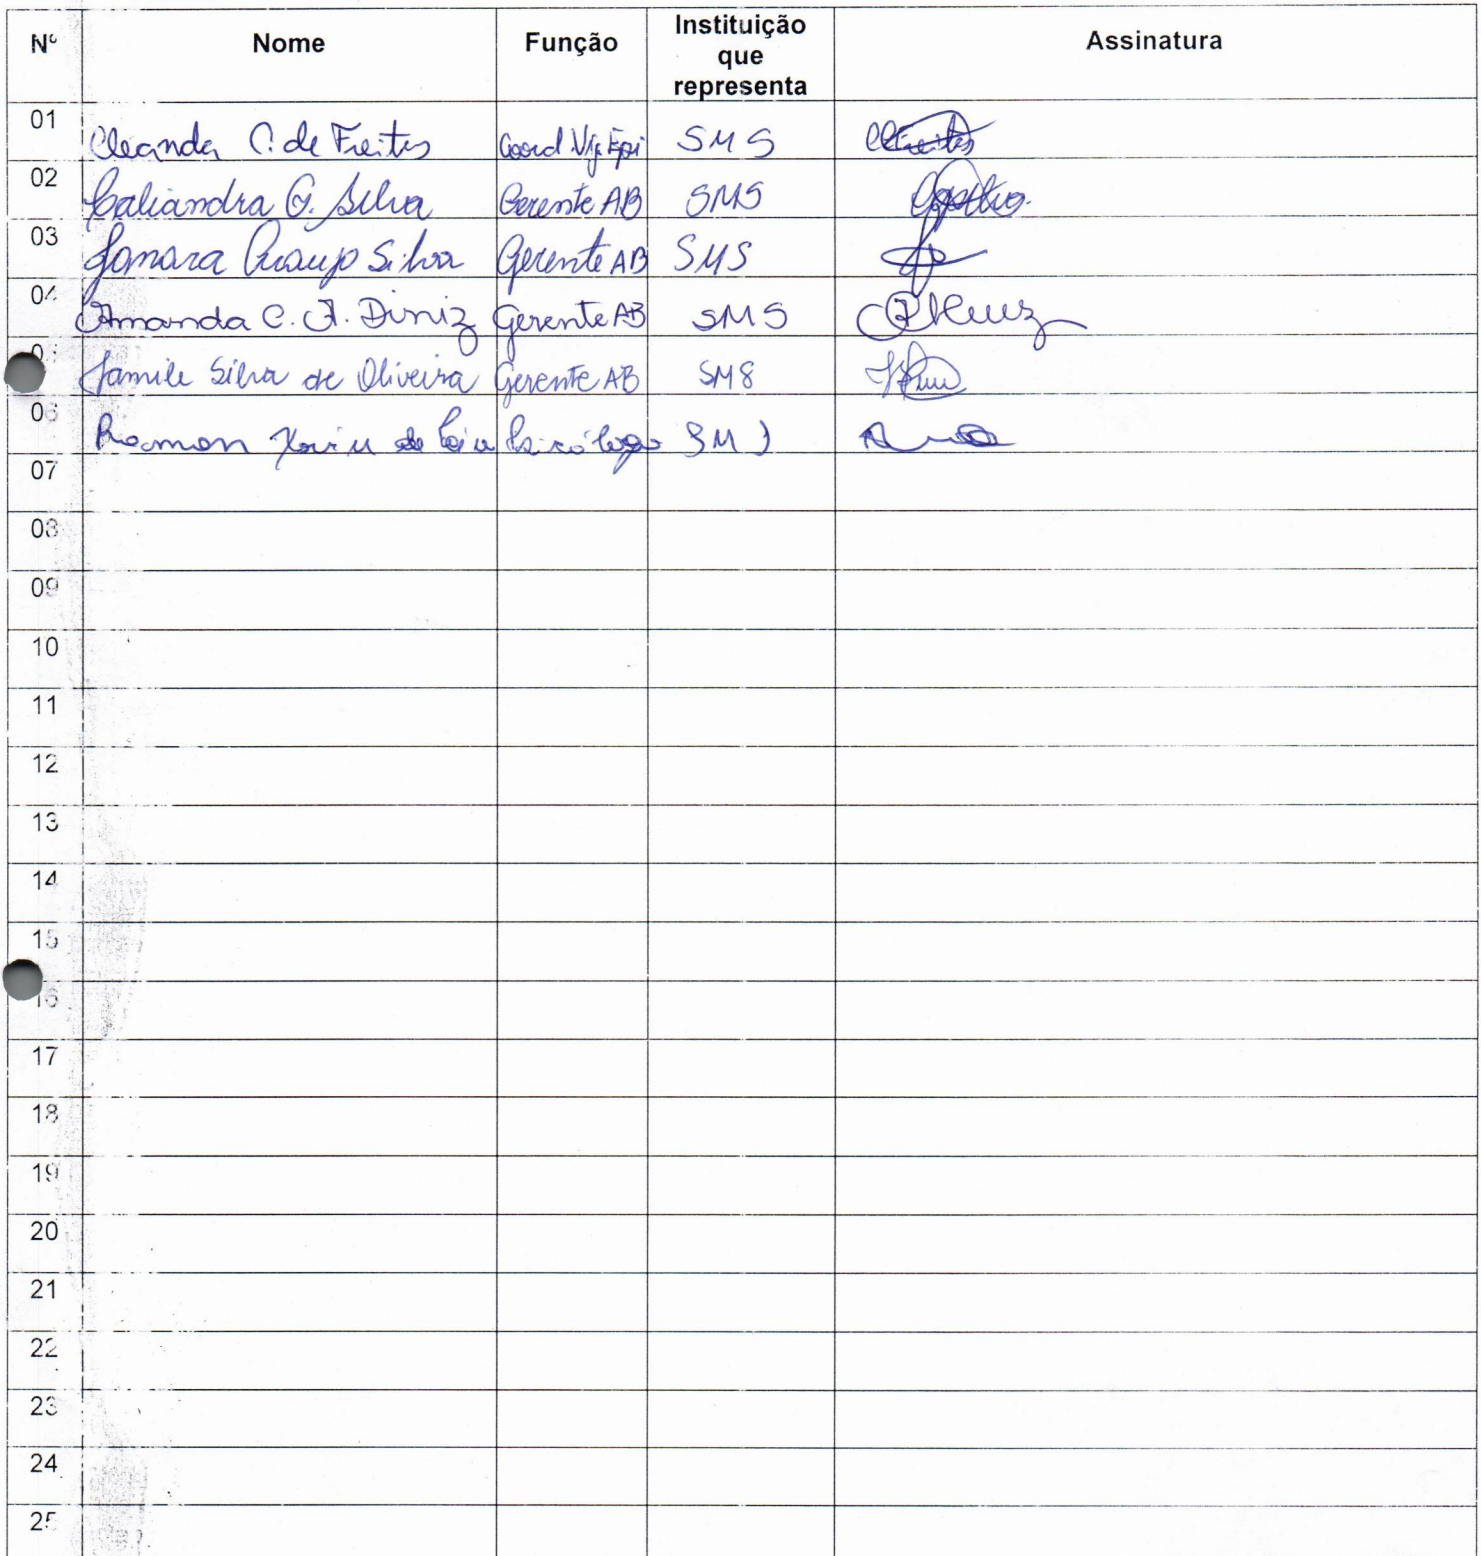 Nº Nome Função Instituição que representa Assinatura
01 Cleanda C. de Freitas Coord Vig. Epi SMS
02 Caliandra G. Silva Gerente AB SMS
03 Samara Araujo Silva Gerente AB SMS
04 Amanda C. A. Diniz Gerente AB SMS
05 Jamile Silva de Oliveira Gerente AB SMS
06 Ramon Psicólogo SMS
07
08
09
10
11
12
13
14
15
16
17
18
19
20
21
22
23
24
25